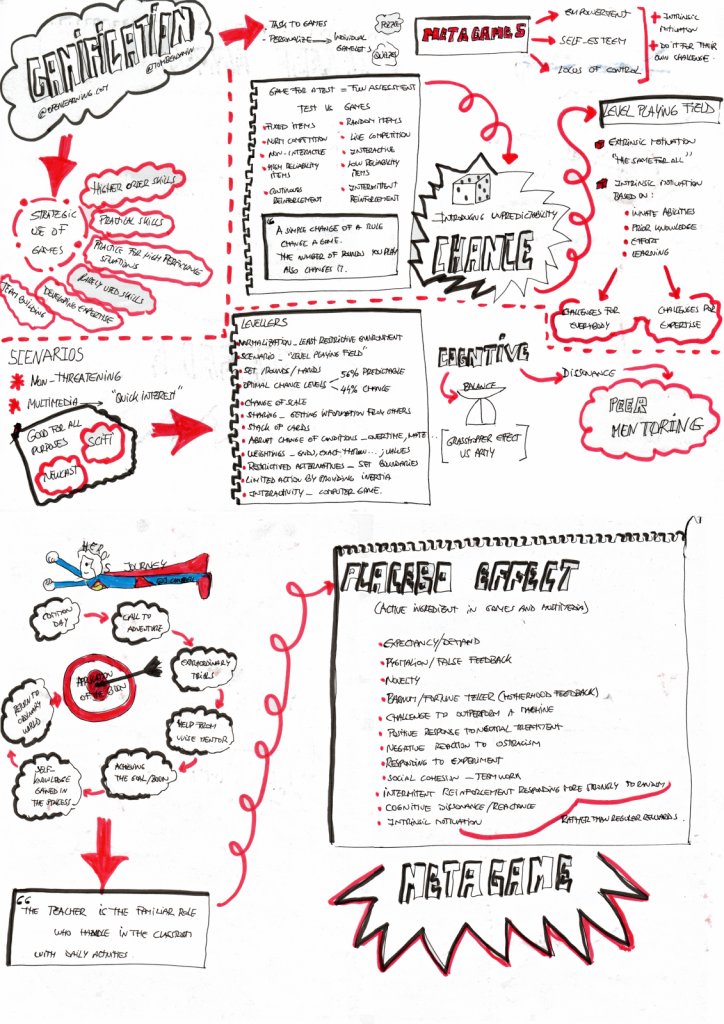 GAMIFICATION
@TOMBENJAMIN
@OPENLEARNING.COM
- TASK TO GAMES
- PERSONALIZE → INDIVIDUAL GAMELETS
PUZZLE
QUIZZES
METAGAMES
EMPOWERTENT
SELF-ESTEEM
LOCUS OF CONTROL
+ INTRINSIC
MOTIVATION
+ DO IT FOR THEIR
OWN CHALLENGE.
STRATEGIC
USE OF
GAMES
HIGHER ORDER SKILLS
PRATICAL SKILLS
PRACTICE FOR HIGH PERFORMANCE
SITUATIONS
RARELY USED SKILLS
DEVELOPING EXPERTISE
TEAM BUILDING
GAME FOR A TEST = FUN ASSESSMENT
TEST VS GAMES
FIXED ITEMS
NORM COMPETITION
NON-INTERACTIVE
HIGH RELIABILITY
ITEMS
CONTINUOUS
REINFORCEMENT
RANDOM ITEMS
LIVE COMPETITION
INTERACTIVE
LOW RELIABILITY
ITEMS
INTERMITENT
REINFORCEMENT
“ A SIMPLE CHANGE OF A RULE
CHANGE A GAME.
THE NUMBER OF ROUNDS YOU PLAY
ALSO CHANGES IT.
INTRODUCING UNPREDICTABILITY
CHANCE
LEVEL PLAYING FIELD
EXTRINSIC MOTIVATION
"THE SAME FOR ALL"
INTRINSIC MOTIVATION
BASED ON:
INNATE ABILITIES
PRIOR KNOWLEDGE
EFFORT
LEARNING
CHALLENGES FOR
EVERYBODY
CHALLENGES FOR
EXPERTISE
SCENARIOS
NON-THREATENING
MULTIMEDIA → "QUICK INTEREST"
GOOD FOR ALL
PURPOSES
SCIFI
NEWCAST
LEVELLERS
NORMALIZATION _ LEAST RESTRICTIVE ENVIRONMENT
SCENARIO _ "LEVEL PLAYING FIELD"
SET / ROUNDS / HANDS
OPTIMAL CHANCE LEVELS
56% PREDICTABLE
44% CHANCE
CHANGE OF SCALE
SHARING _ GETTING INFORMATION FROM OTHERS
STACK OF CARDS
ABRUPT CHANGE OF CONDITIONS _ OVERTIME, MATE...
WEIGHTINGS _ ; VALUES
RESTRICTIVED ALTERNATIVES _ SET BOUNDARIES
LIMITED ACTION BY PROVIDING INERTIA
INTERACTIVITY _ COMPUTER GAME.
COGNITIVE
BALANCE
GRASSHOPPER EFFECT
VS ANTY
DISSONANCE
PEER
MENTORING
HERO'S
JOURNEY
@J.CAMPBELL
COMMON
DAY
CALL TO
ADVENTURE
EXTRAORDINARY
TRIALS
HELP FROM
WISE MENTOR
ACHIEVING
THE GOAL/BOON
SELF-
KNOWLEDGE
GAINED IN
THE PROCESS
RETURN TO
ORDINARY
WORLD
APPLICATION
OF THE BOON
“ THE TEACHER IS THE FAMILIAR ROLE
WHO HANDLE IN THE CLASSROOM
WITH DAILY ACTIVITIES.
PLACEBO EFFECT
(ACTIVE INGREDIENT IN GAMES AND MULTIMEDIA)
EXPECTANCY/DEMAND
PYGMALION/FALSE FEEDBACK
NOVELTY
BARNUM/FORTUNE TELLER (MOTHERHOOD FEEDBACK)
CHALLENGE TO OUTPERFORM A MACHINE
POSITIVE RESPONSE TO NEUTRAL TREATMENT
NEGATIVE REACTION TO OSTRACISM
RESPONDING TO EXPERIMENT
SOCIAL COHESION _ TEAMWORK
INTERMITENT REINFORCEMENT RESPONDING MORE STRONGLY TO RANDOM
RATHER THAN REGULAR REWARDS.
COGNITIVE DISSONANCE/REACTANCE
INTRINSIC MOTIVATION
METAGAME